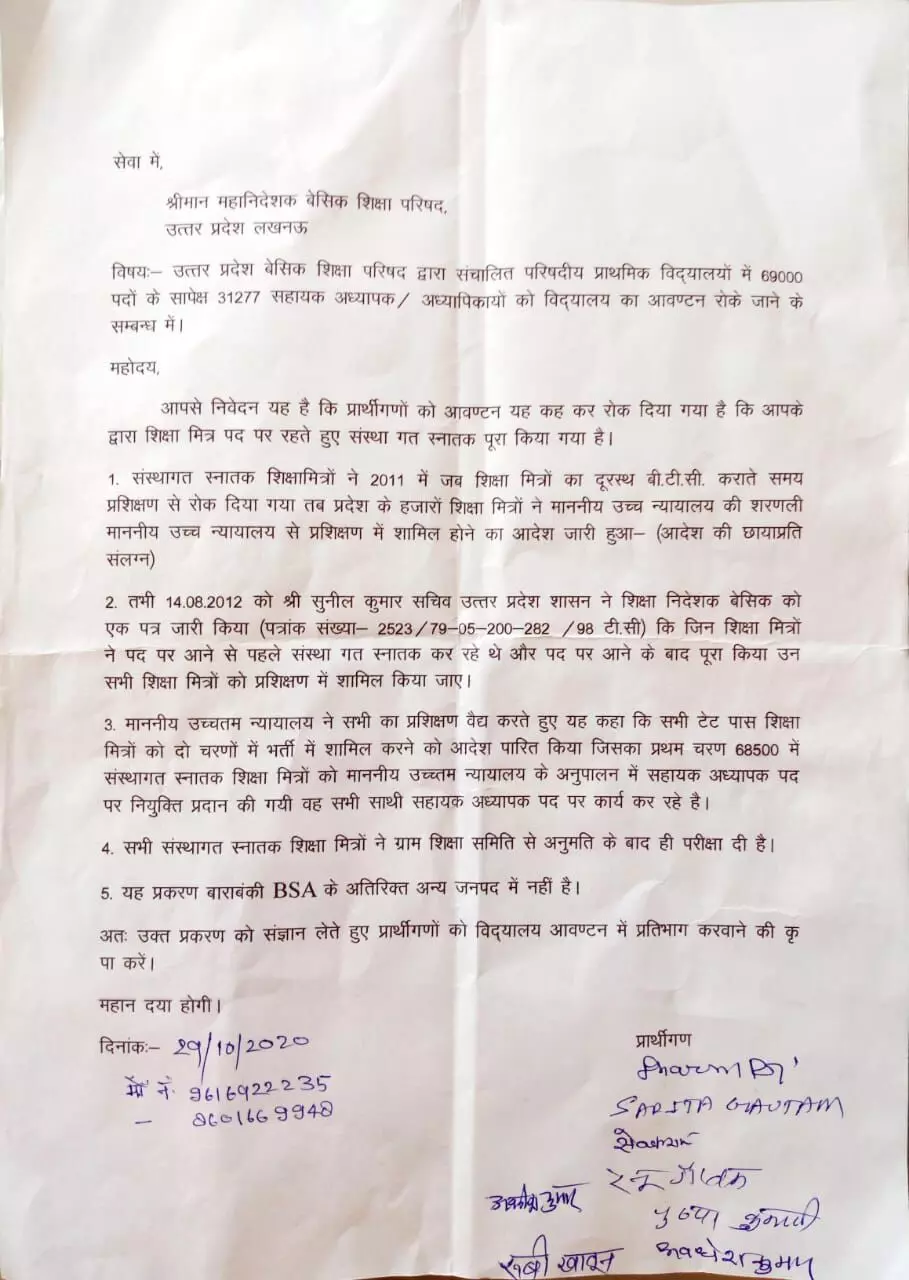 सेवा में,
श्रीमान महानिदेशक बेसिक शिक्षा परिषद,
उत्तर प्रदेश लखनऊ
विषयः– उत्तर प्रदेश बेसिक शिक्षा परिषद द्वारा संचालित परिषदीय प्राथमिक विद्यालयों में 69000
पदों के सापेक्ष 31277 सहायक अध्यापक/ अध्यापिकायों को विद्यालय का आवण्टन रोके जाने के
सम्बन्ध में।
महोदय,
आपसे निवेदन यह है कि प्रार्थीगणों को आवण्टन यह कह कर रोक दिया गया है कि आपके
द्वारा शिक्षा मित्र पद पर रहते हुए संस्था गत स्नातक पूरा किया गया है।
1. संस्थागत स्नातक शिक्षामित्रों ने 2011 में जब शिक्षा मित्रों का दूरस्थ बी.टी.सी. कराते समय
प्रशिक्षण से रोक दिया गया तब प्रदेश के हजारों शिक्षा मित्रों ने माननीय उच्च न्यायालय की शरणली
माननीय उच्च न्यायालय से प्रशिक्षण में शामिल होने का आदेश जारी हुआ– (आदेश की छायाप्रति
संलग्न)
2. तभी 14.08.2012 को श्री सुनील कुमार सचिव उत्तर प्रदेश शासन ने शिक्षा निदेशक बेसिक को
एक पत्र जारी किया (पत्रांक संख्या– 2523/79-05-200-282 /98 टी.सी) कि जिन शिक्षा मित्रों
ने पद पर आने से पहले संस्था गत स्नातक कर रहे थे और पद पर आने के बाद पूरा किया उन
सभी शिक्षा मित्रों को प्रशिक्षण में शामिल किया जाए।
3. माननीय उच्चतम न्यायालय ने सभी का प्रशिक्षण वैद्य करते हुए यह कहा कि सभी टेट पास शिक्षा
मित्रों को दो चरणों में भर्ती में शामिल करने को आदेश पारित किया जिसका प्रथम चरण 68500 में
संस्थागत स्नातक शिक्षा मित्रों को माननीय उच्च्तम न्यायालय के अनुपालन में सहायक अध्यापक पद
पर नियुक्ति प्रदान की गयी वह सभी साथी सहायक अध्यापक पद पर कार्य कर रहे है।
4. सभी संस्थागत स्नातक शिक्षा मित्रों ने ग्राम शिक्षा समिति से अनुमति के बाद ही परीक्षा दी है।
5. यह प्रकरण बाराबंकी BSA के अतिरिक्त अन्य जनपद में नहीं है।
अतः उक्त प्रकरण को संज्ञान लेते हुए प्रार्थीगणों को विद्यालय आवण्टन में प्रतिभाग करवाने की कृ
पा करें।
महान दया होगी।
दिनांकः– 29/10/2020
मो नं. 9616922235
– 8601669948
प्रार्थीगण
SARITA GAUTAM
पुष्पा कुमारी
अवधेश कुमार
रूबी खातून